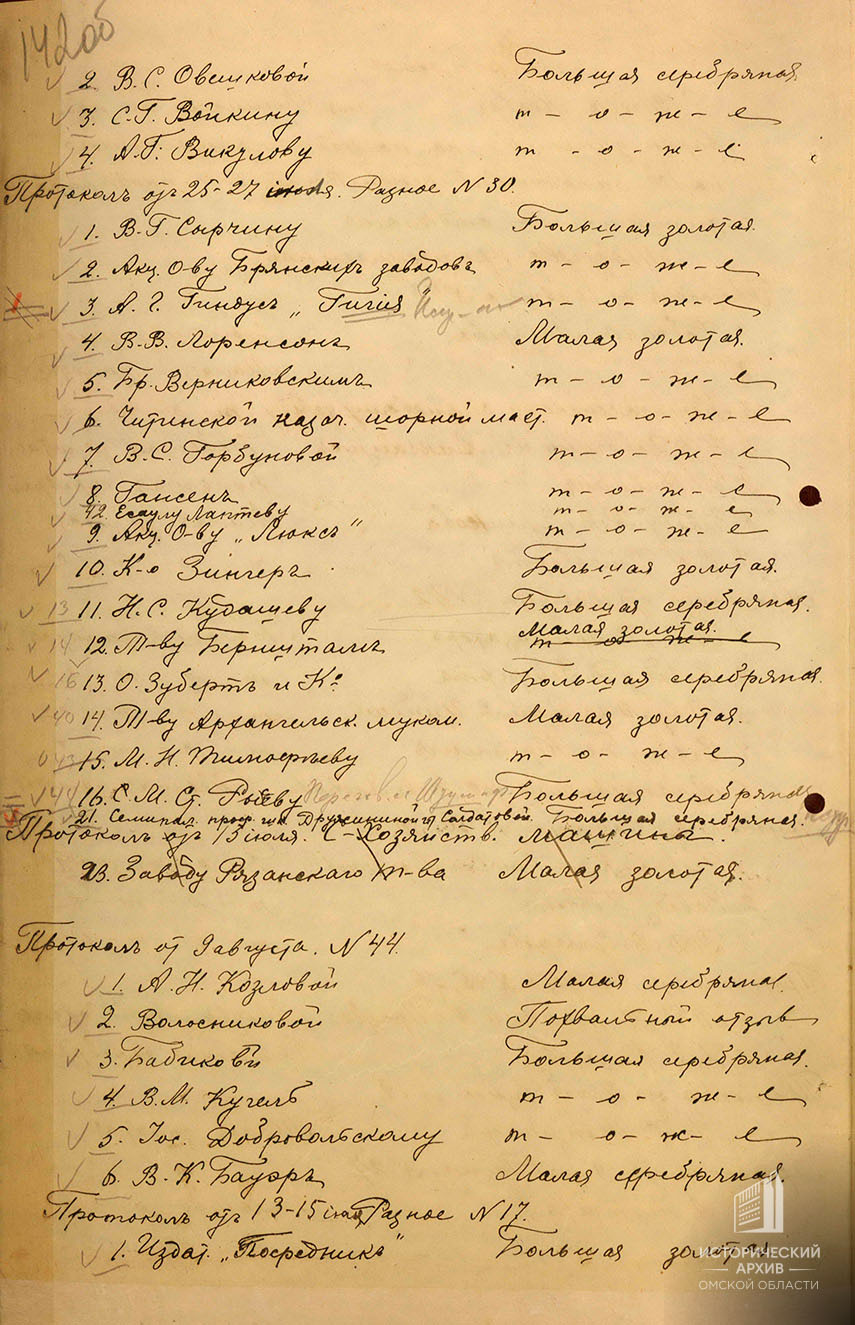 142об
2. В. С. Овешковой Большая серебряная.
3. С. Г. Войкину т - о - ж - е
4. А. Г. Викулову т - о - ж - е
Протоколъ отъ 25-27 июля. Разное N 30.
1. В. Г. Сырчину Большая золотая.
2. Акц. О-ву Брянскихъ заводовъ т - о - ж - е
3. А. Г. Гиндусъ „Гигія" т - о - ж - е
4. В. В. Лоренсонъ Малая золотая.
5. Бр. Верниковскимъ т - о - ж - е
6. Читинской казач. шорной маст. т - о - ж - е
7. В. С. Горбуновой т - о - ж - е
8. Гансенъ т - о - ж - е
42. Есаулу Лаптеву т - о - ж - е
9. Акц. О-ву „Люксъ" т - о - ж - е
10. К-о Зингеръ. Большая золотая.
13 11. Н. С. Кудашеву Большая серебряная.
Малая золотая.
14 12. Т-ву Бернштамъ т о ж е
16 13. О. Зубертъ и Ко Большая серебряная.
40 14. Т-ву Архангельск. муком. Малая золотая.
43 15. М. Н. Тимофѣеву т - о - ж - е
44 16. С. М. Ст. Большая серебряная
21. Семипал. проф. шк. Дружининой и Солдатовой. Большая серебряная.
Протоколъ отъ 15 июля. С-Хозяйств. машины.
23. Заводу Рязанскаго т-ва Малая золотая.
Протоколъ от 9 августа. N 44.
1. А. Н. Козловой Малая серебряная.
2. Волосниковой Похвальный отзыв
3. Бабиковой Большая серебряная.
4. В. М. Кугель т - о - ж - е
5. Іос. Добровольскому т - о - ж - е
6. В. К. Бауэръ Малая серебряная.
Протоколъ отъ 13-15 июля Разное N 17.
1. Издат. „Посредникъ" Большая золотая.
ИСТОРИЧЕСКИЙ
АРХИВ
ОМСКОЙ ОБЛАСТИ